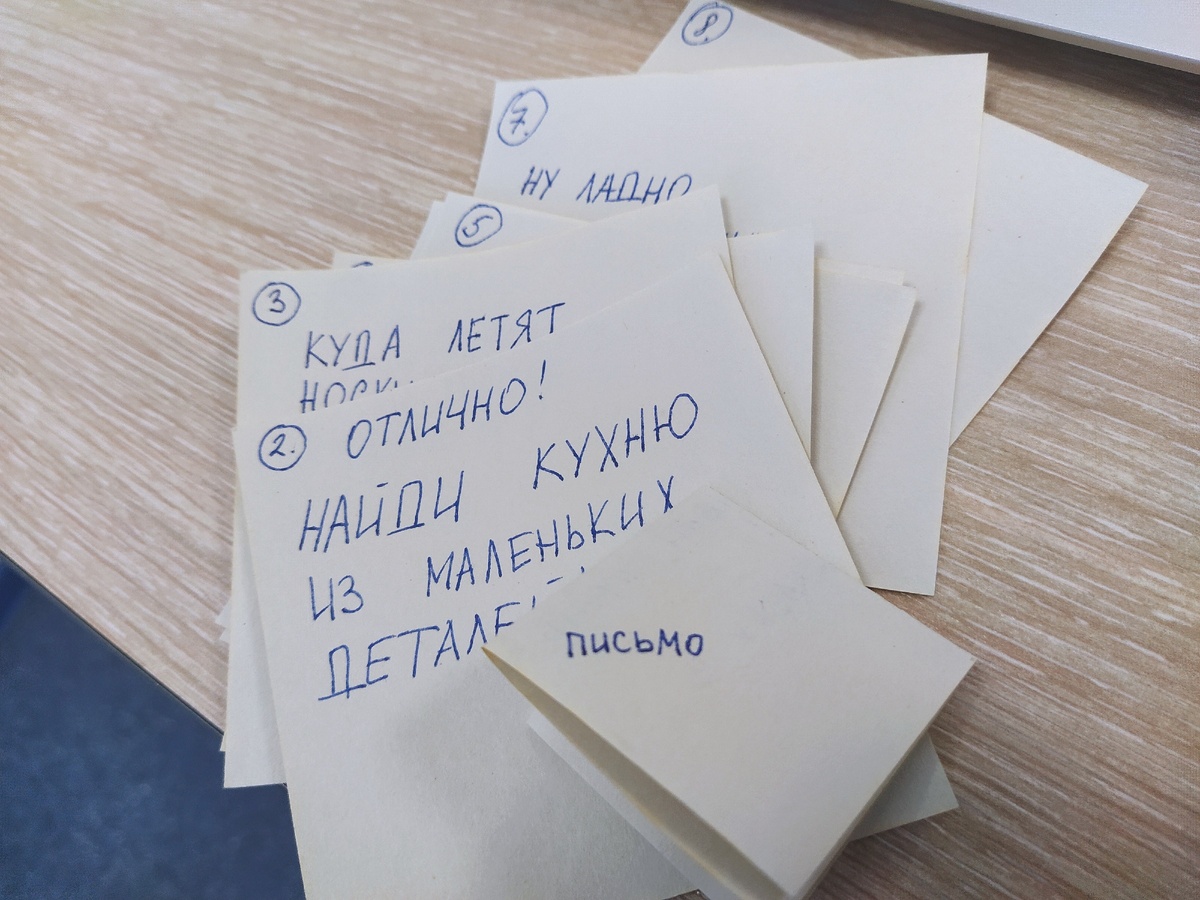 8.
7.
НУ ЛАДНО
5
3
КУДА ЛЕТЯТ
2. ОТЛИЧНО!
НАЙДИ КУХНЮ
ИЗ МАЛЕНЬКИХ
письмо